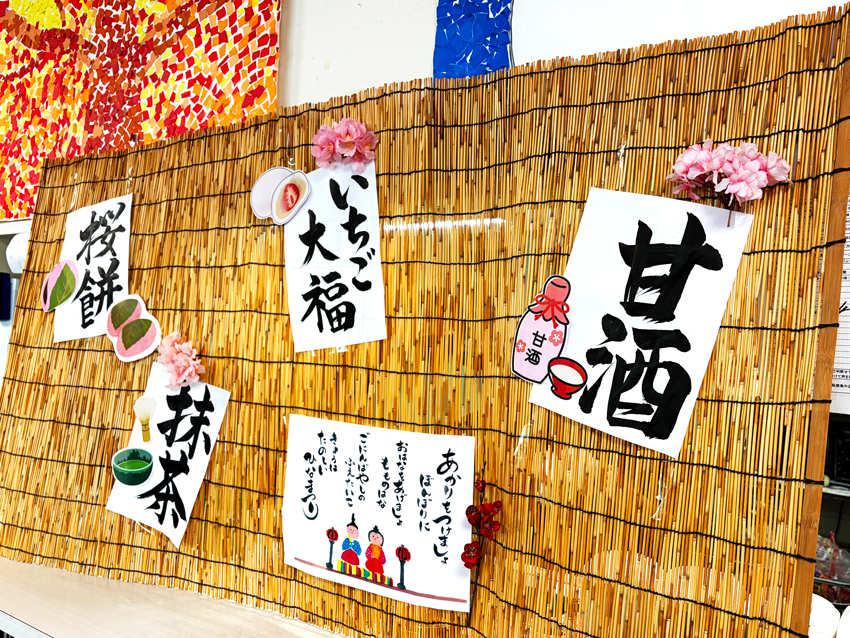 甘酒
甘酒
いちご
大福
桜餅
抹茶
あかりをつけましょ
ぼんぼりに
おはなをあげましょ
もものはな
ごにんばやしの
ふえたいこ
きょうは
たのしい
ひなまつり